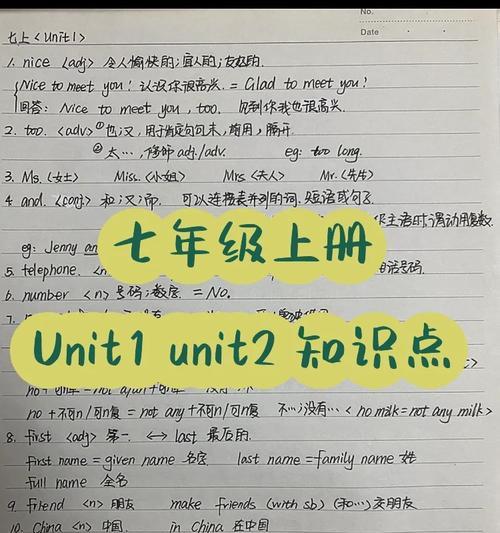 No.
Date
七上<Unit1>
1. nice <adj> 令人愉快的;宜人的;友好的.
Nice to meet you! 认识你很高兴. = Glad to meet you!
回答: Nice to meet you, too. 见到你我也很高兴.
2. too. <adv> ① 也,又, 用于肯定句句末, 前用, 隔开
② 太…, 修饰 adj./adv. eg: too long.
3. Ms.(女士) Miss.(小姐) Mrs(夫人) Mr.(先生)
4 and. <conj> 和,又,而. 可以连接表并列的词.短语或句子
主语时谓动用复数.
eg: Jenny an
七年级上册
5. telephone. 话号码.
6. number <n> 号码;数字. = No.
7.
Unit1 unit2 知识点
no + 不可n/可n复 = not any + 不可n/可n复 不…;没有… <no milk = not any milk>
8. first <adj> 第一. ↔ last 最后的.
first name = given name 名字 last name = family name 姓
full name 全名
9. friend <n> 朋友 make friends (with sb) (和…)交朋友
10. China <n> 中国. in China 在中国